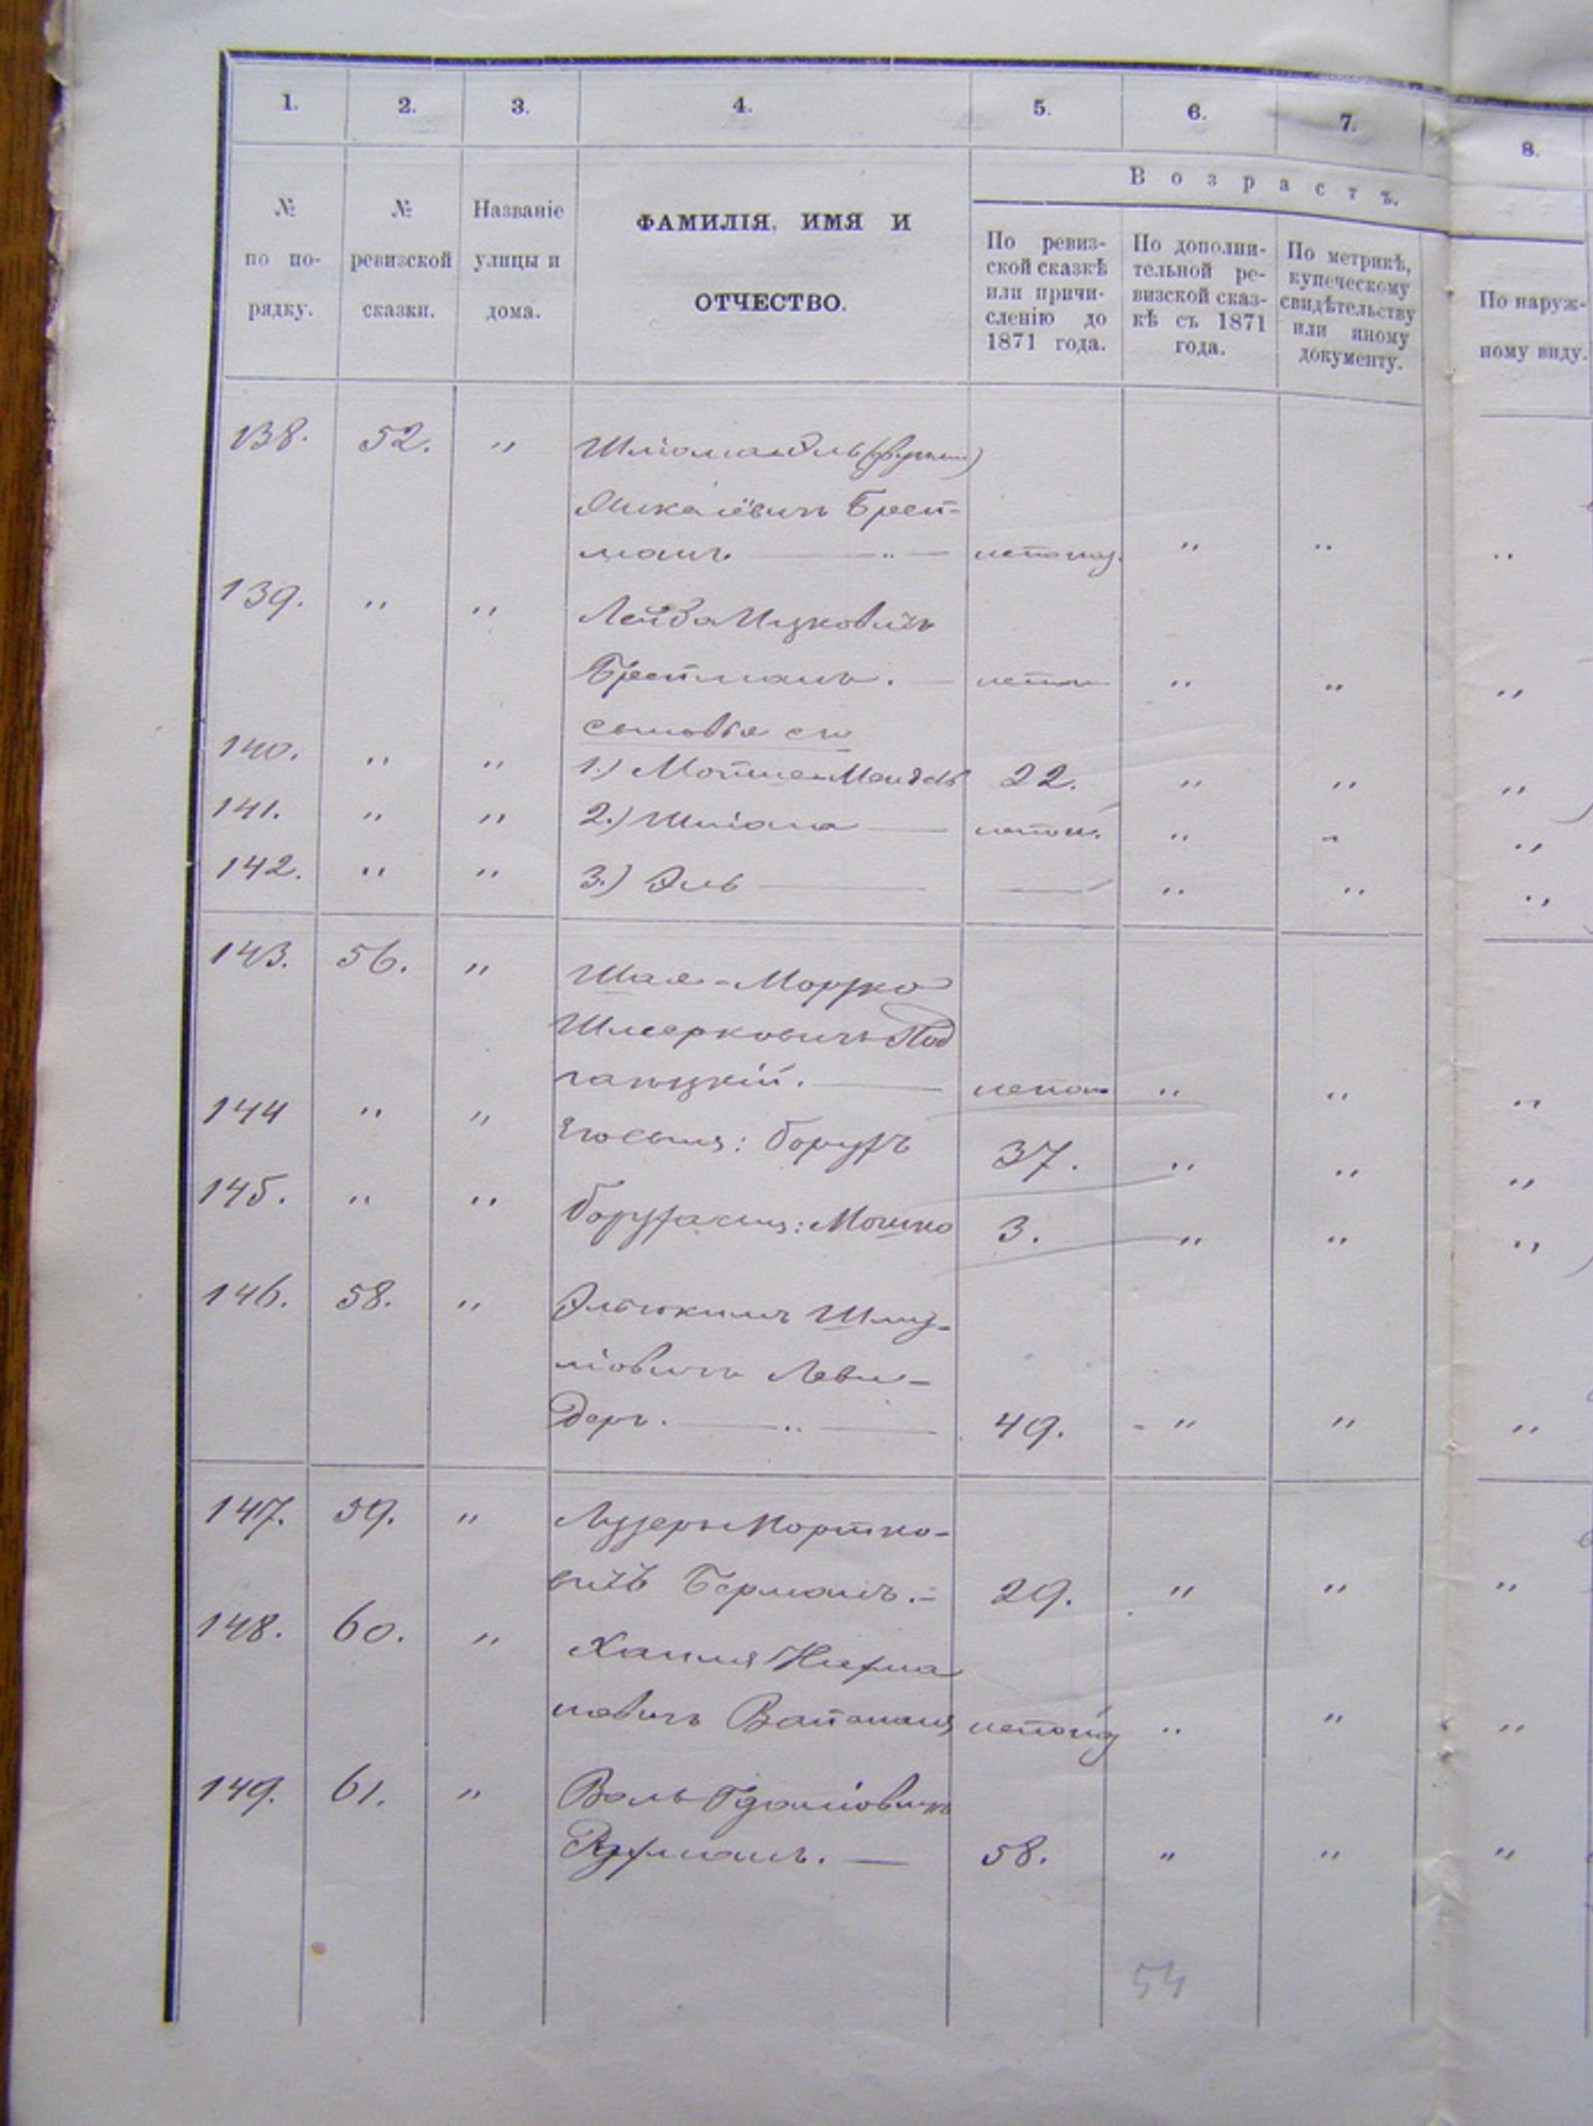 1. 2. 3. 4. 5. 6. 7. 8.
Возрастъ.
№ по порядку.
№ ревизской сказки.
Названіе улицы и дома.
ФАМИЛІЯ, ИМЯ И
ОТЧЕСТВО.
По ревиз-
ской сказкѣ
или причи-
сленію до
1871 года.
По дополни-
тельной ре-
визской сказ-
кѣ съ 1871
года.
По метрикѣ,
купеческому
свидѣтельству
или иному
документу.
По наруж-
ному виду.
138. 52. "
Брей-
манъ — " — " " "
139. " " Лейба Ицковичъ
Брейманъ. — " " "
сыновья его
140. " " 1.) Мендель 22. " " "
141. " " 2.) Шліома — " " "
142. " " 3.) Эль — — " " "
143. 56. " Шая-Мордко
Шмерковичъ Под
гаецкій. — " " "
144 " " Его сынъ: Борухъ 37. " " "
145. " " Боруха сынъ: Мошко 3. " " "
146. 58. " Эльюкимъ Шму-
ліовичъ Леви-
деръ. — " — 49. " " "
147. 59. " Лузеръ Мортко-
вичъ Берманъ. 29. " " "
148. 60. " Нухма
новичъ Вайсманъ " " "
149. 61. "
58. " " "
54